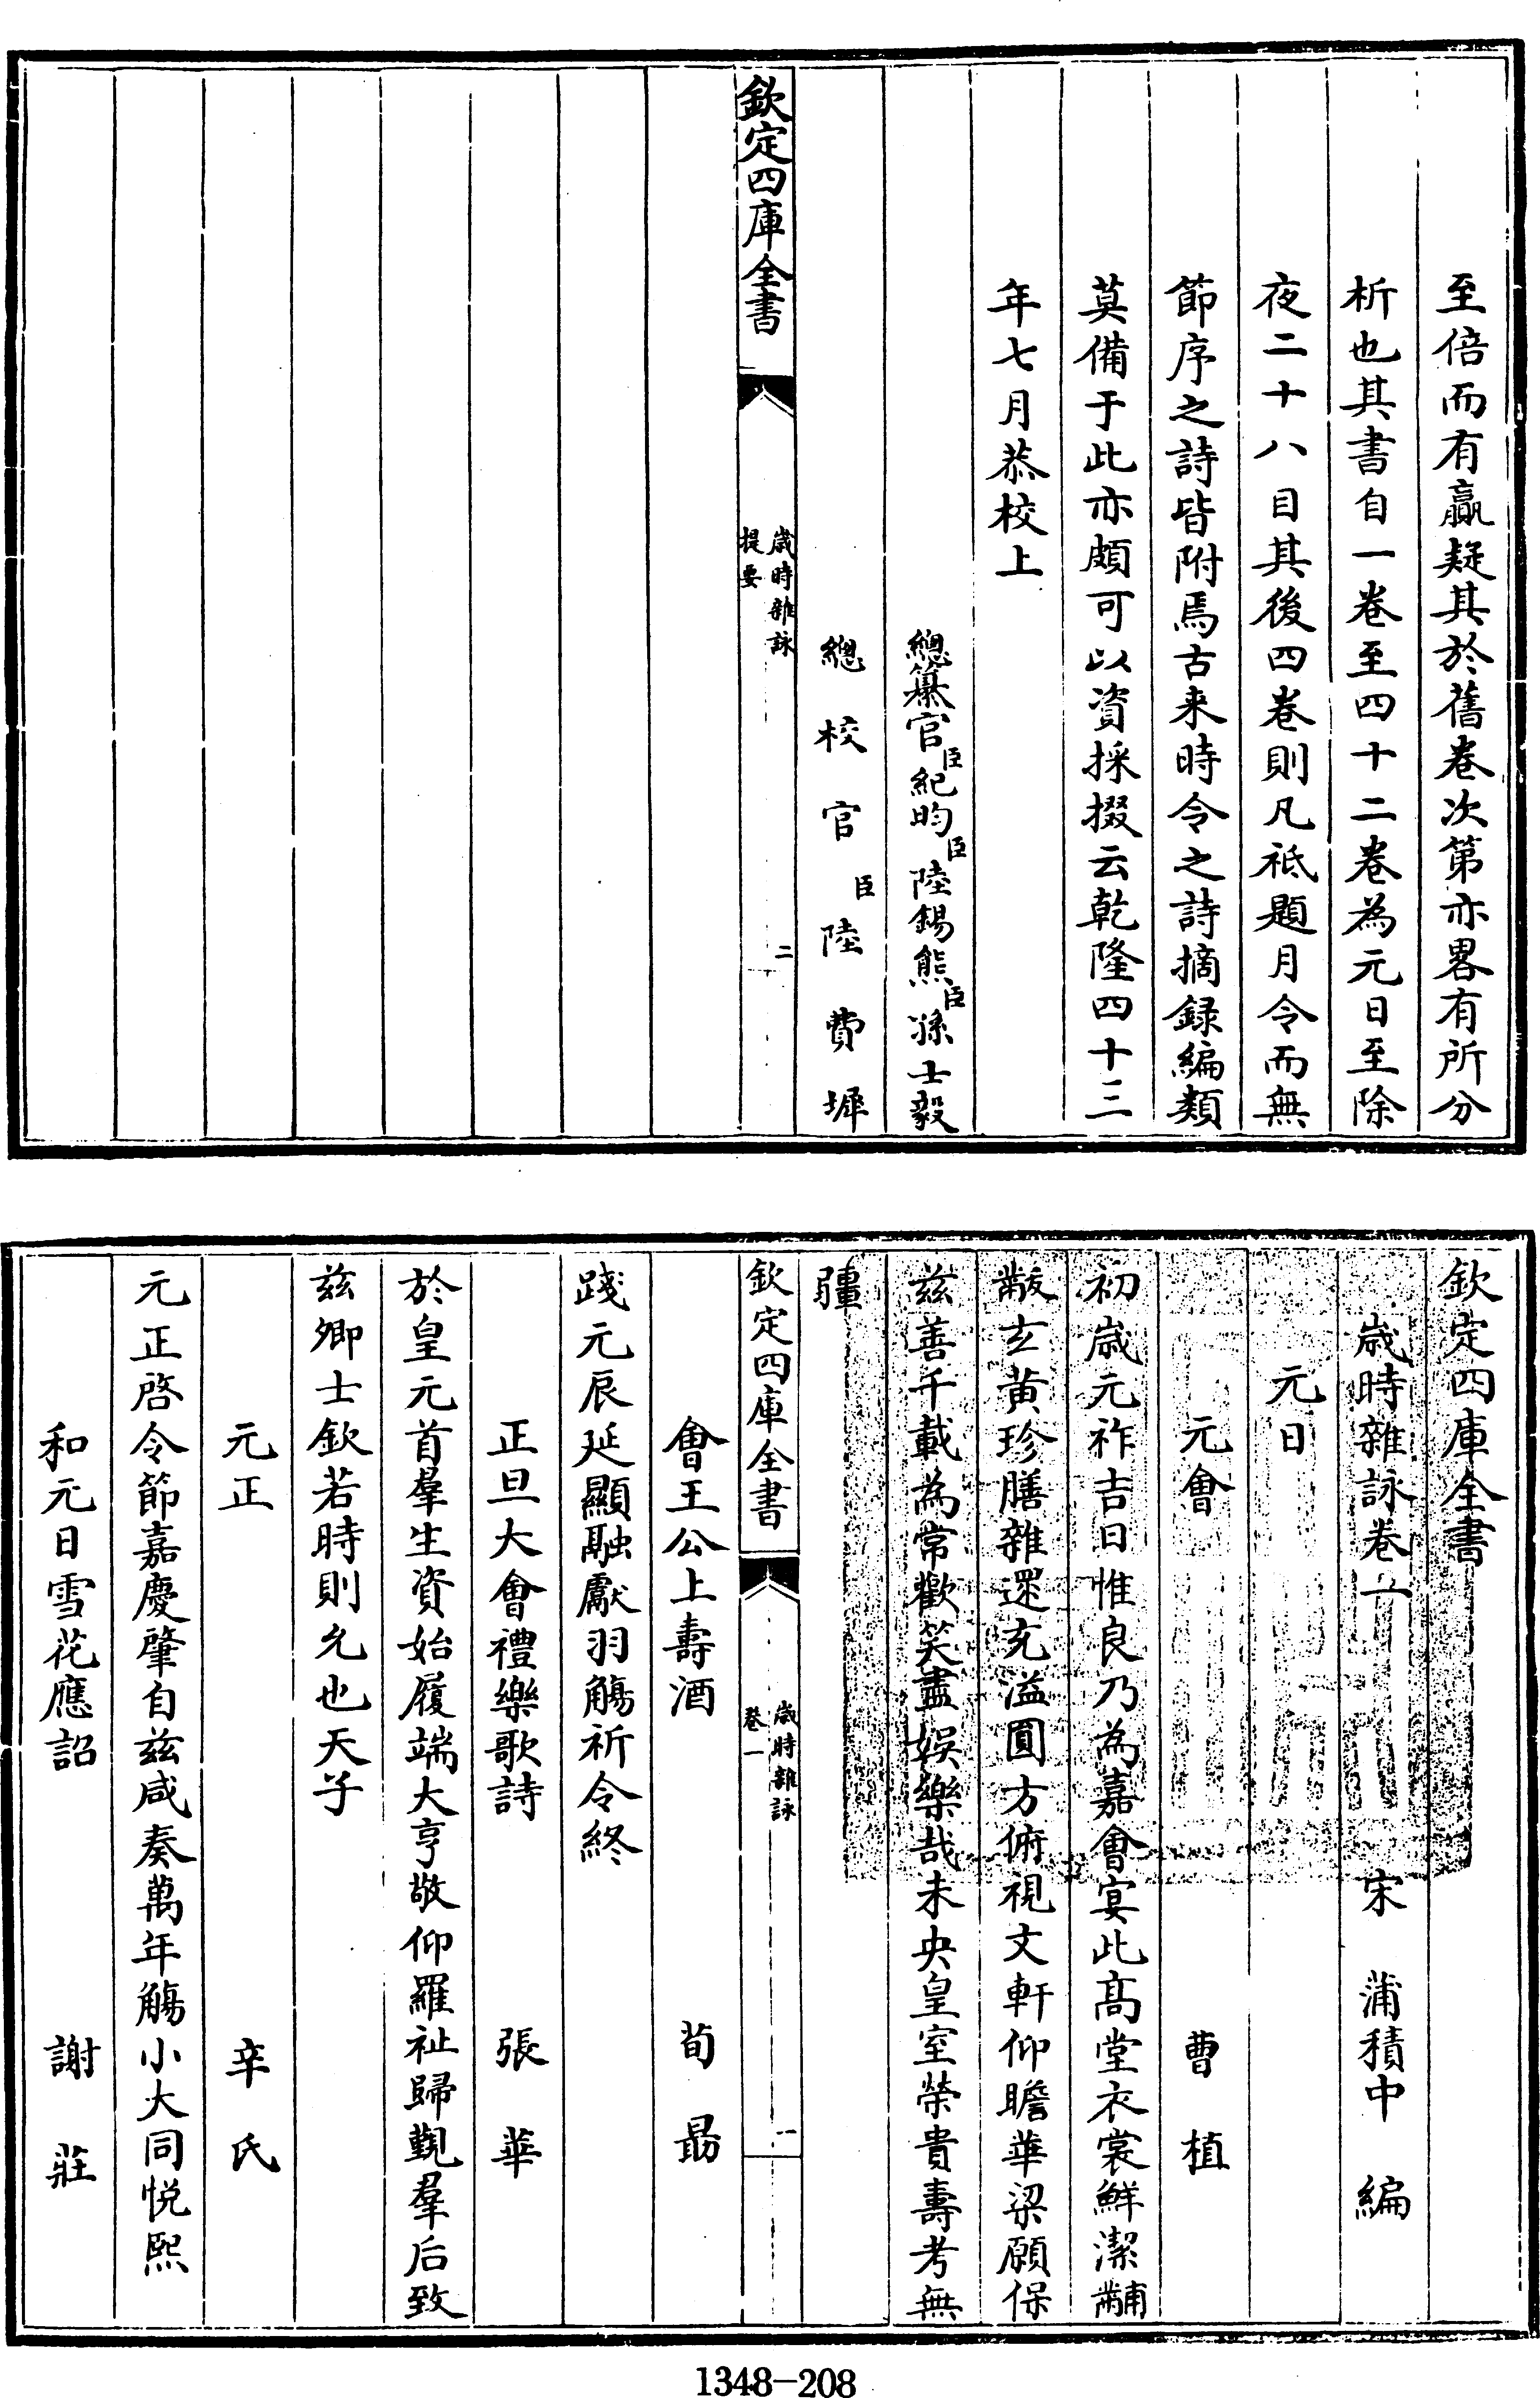 至倍而有贏疑其於舊卷次第亦畧有所分
析也其書自一卷至四十二卷為元日至除
夜二十八目其後四卷則凡祗題月令而無
節序之詩皆附焉古来時令之詩摘録編類
莫備于此亦頗可以資採掇云乾隆四十三
年七月恭校上
總纂官臣紀昀臣陸錫熊臣孫士毅
總校官臣陸費墀
欽定四庫全書
歲時雜詠
提要
二
欽定四庫全書
歲時雜詠卷一 宋 蒲積中 編
元日
元會 曹植
初歲元祚吉日惟良乃為嘉會宴此髙堂衣裳鮮潔黼
黻玄黄珍膳雜遝充溢圓方俯視文軒仰瞻華梁願保
兹善千載為常歡笑盡娛樂哉未央皇室榮貴壽考無
疆
欽定四庫全書
歲時雜詠
卷一
一
會王公上壽酒 荀勗
踐元辰延顯融獻羽觴祈令終
正旦大會禮樂歌詩 張華
於皇元首羣生資始履端大亨敬仰羅祉歸覲羣后致
兹卿士欽若時則允也天子
元正 辛氏
元正啓令節嘉慶肇自兹咸奏萬年觴小大同悦熙
和元日雪花應詔 謝莊
1348-208